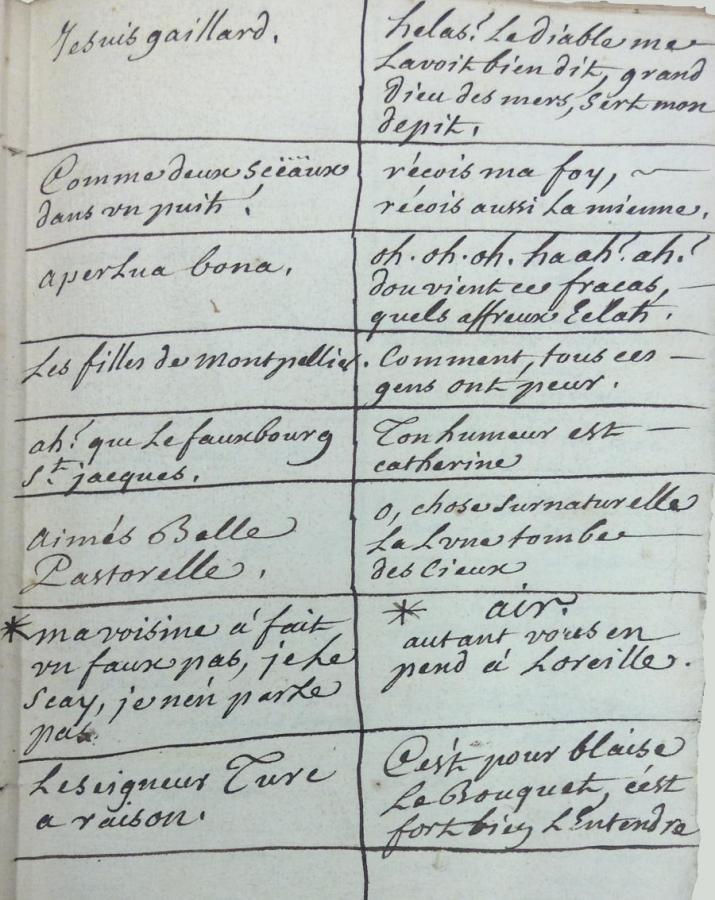 Je suis gaillard.
helas! Le diable me
Lavoit bien dit, grand
Dieu des mers, sert mon
depit.
Comme deux sçëäux
dans vn puits.
récois ma foy, ~
récois aussi La mienne.
apertua bona.
oh. oh. oh. ha ah! ah!
dou vient ce fracas,
quels affreux Eclats.
Les filles de montpellier.
Comment, tous ces
gens ont peur.
ah! que Le fauxbourg
St. jacques.
Ton humeur est
catherine
aimés Belle
Pastorelle.
o, chose surnaturelle
La Lune tombe
des Cieux
* ma voisine á fait
vn faux pas, je Le
scay, je nén parle
pas
* air.
autant vous en
pend á Loreille.
Le seigneur Turc
a raison.
Cést pour blaise
Le Bouquet, cést
fort bien L'Entendre